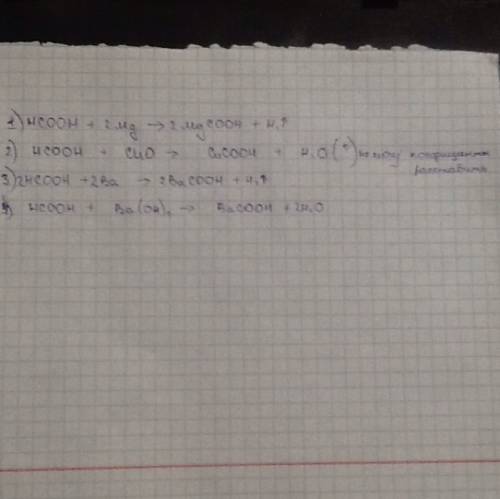 1) HCOOH + 2Mg → 2MgCOOH + H₂↑
2) HCOOH + CuO → CuCOOH + H₂O (*) не могу коэфициенты
расставить
3) 2HCOOH + 2Ba → 2BaCOOH + H₂↑
4) HCOOH + Ba(OH)₂ → BaCOOH + 2H₂O